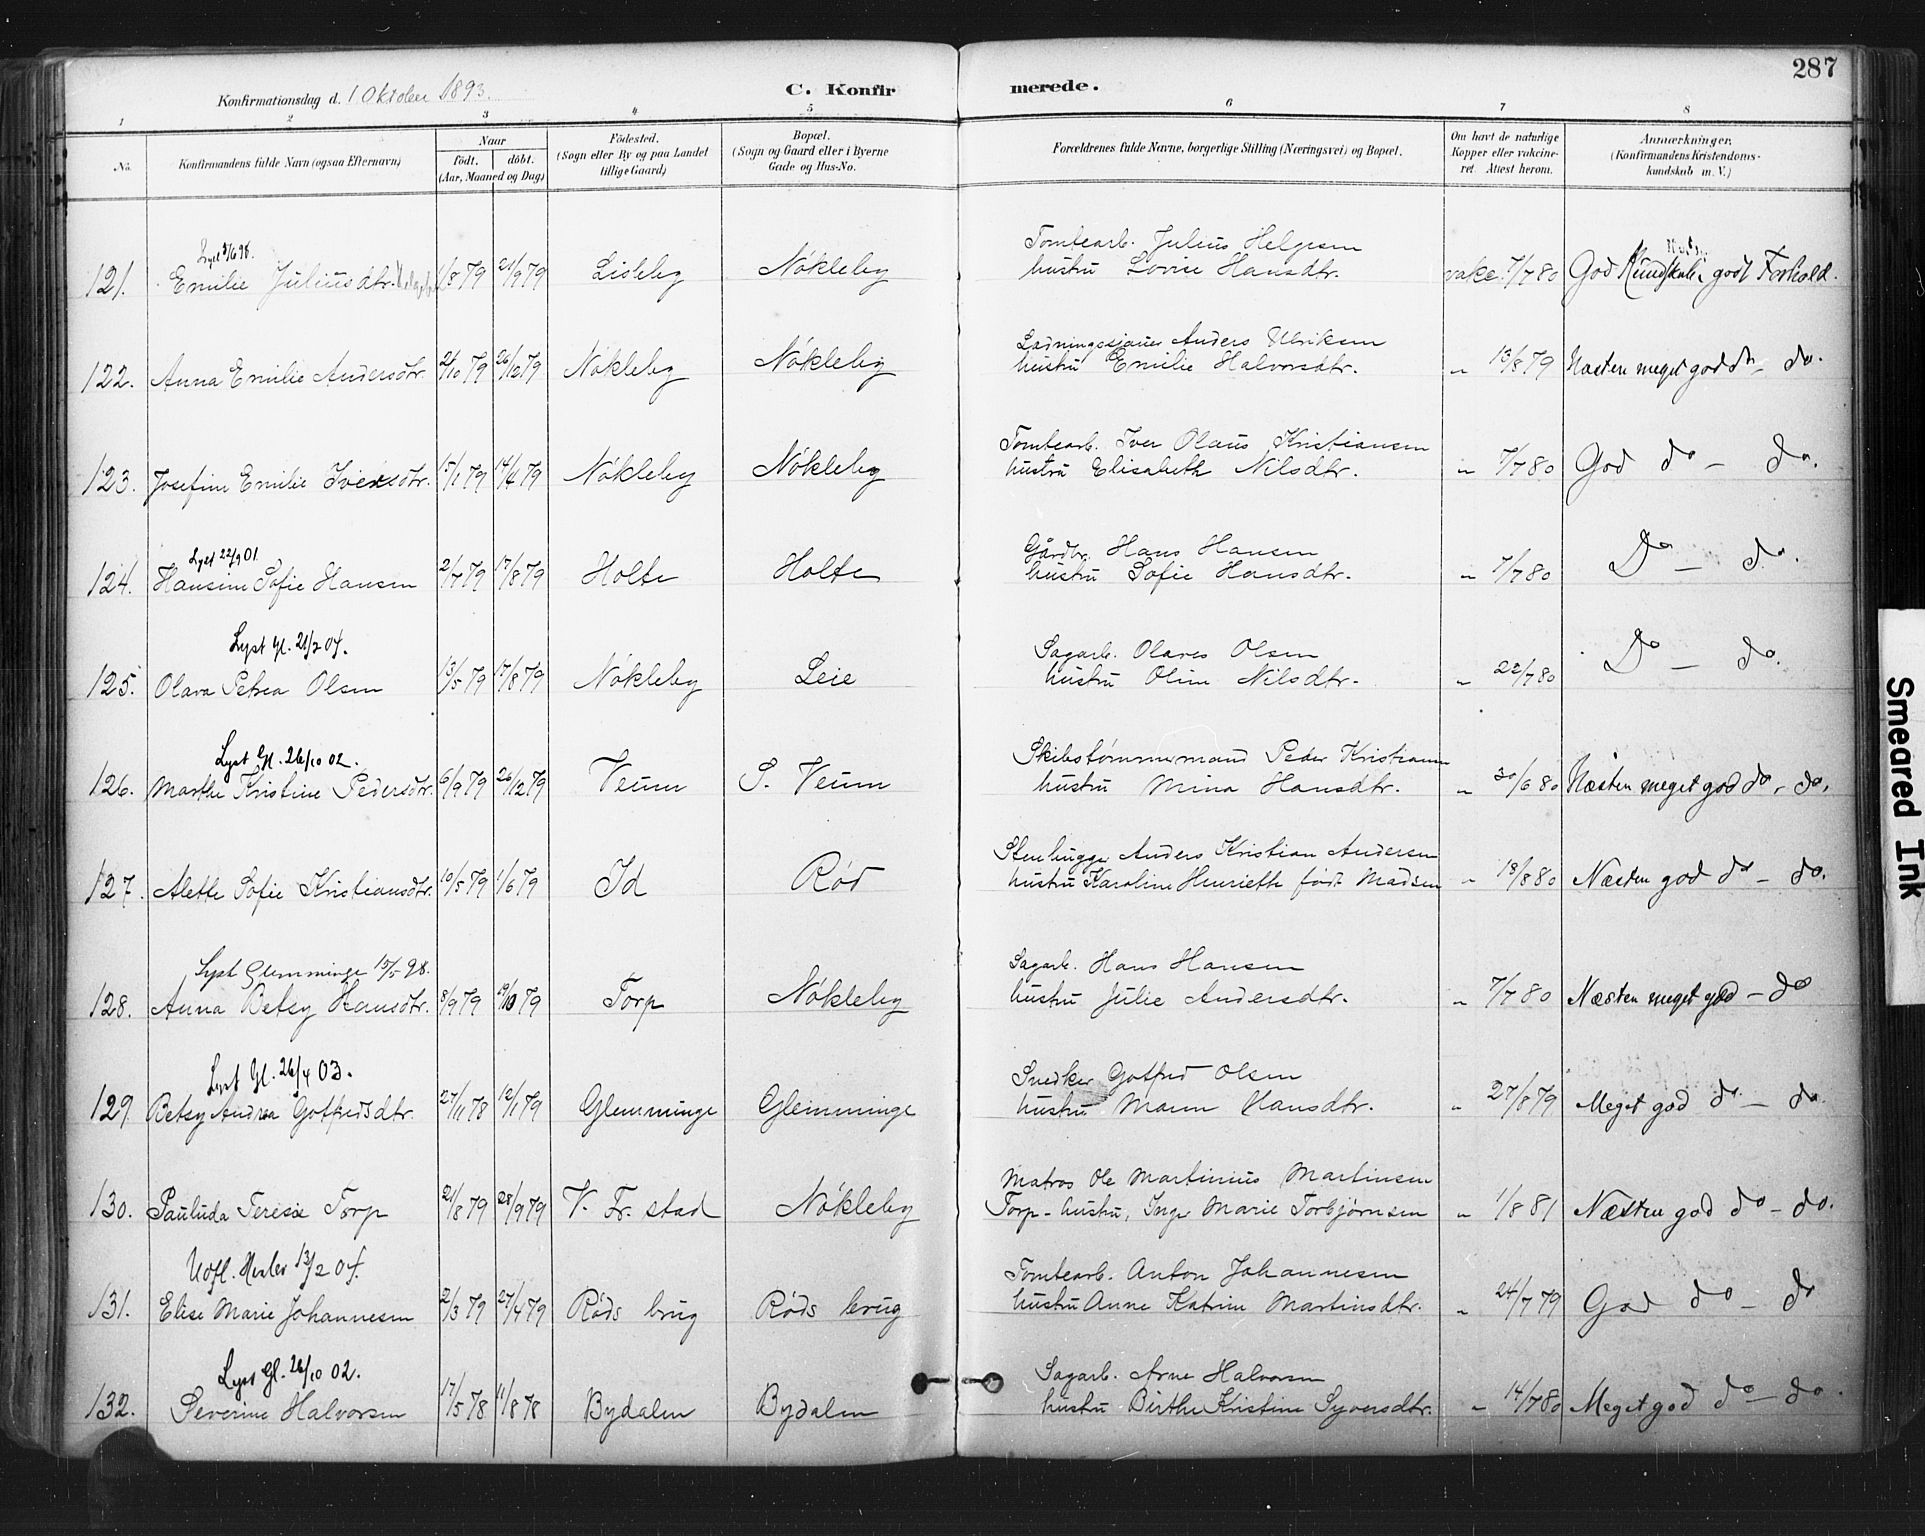 287
Konfirmationsdag d. 1 Oktober 1893.
C. Konfirmerede.
1 2 3 4 5 6 7 8
No.
Konfirmandens fulde Navn (ogsaa Efternavn)
Naar
födt. döbt.
(Aar, Maaned og Dag)
Födested.
(Sogn eller By og paa Landet
tillige Gaard)
Bopæl.
(Sogn og Gaard eller i Byerne
Gade og Hus-No.
Forældrenes fulde Navne, borgerlige Stilling (Næringsvei) og Bopæl.
Om havt de naturlige
Kopper eller vakcine-
ret Attest herom.
Anmærkninger.
(Konfirmandens Kristendoms-
kundskab m. V.)
Lyst 5/6 98.
Tomtearb. Julius Helgesen
121. Emilie Juliusdtr. 1/8 79 21/9 79 Lisleby Nökleby hustru Lovise Hansdtr. vakc. 7/7 80 God Kundskab, godt Forhold.
Ladningssjauer Anders Ulriksen
122. Anna Emilie Andersdtr. 21/10 79 26/12 79 Nökleby Nökleby hustru Emilie Halvorsdtr. " 13/8 79 Næsten meget god do - do.
Tomtearb. Iver Olaus Kristiansen
123. Josefine Emilie Iversdtr. 15/1 79 14/4 79 Nökleby Nökleby hustru Elisabeth Nilsdtr. " 7/7 80 God do - do.
Lyst 22/9 01.
Gårdbr. Hans Hansen
124. Hansine Sofie Hansen 2/7 79 17/8 79 Holte Holte hustru Sofie Hansdtr. " 7/7 80 Do - do.
Lyst Gl. 21/2 04.
Sagarb. Olaves Olsen
125. Olava Petrea Olsen 13/5 79 17/8 79 Nökleby Leie hustru Oline Nilsdtr. " 22/7 80 Do - do.
Lyst Gl. 26/10 02.
Skibstømmermand Peder Kristiansen
126. Marthe Kristine Pedersdtr. 6/9 79 26/12 79 Veum S. Veum hustru Mina Hansdtr. " 30/6 80 Næsten meget god do - do.
Stenhugger Anders Kristian Andersen
127. Alette Sofie Kristiansdtr. 10/5 79 1/6 79 Id Rød hustru Karoline Henriette født Madsen " 18/8 80 Næsten god do - do.
Lyst Glemminge 15/5 98.
Sagarb. Hans Hansen
128. Anna Betsy Hansdtr. 8/9 79 19/10 79 Torp Nökleby hustru Julie Andersdtr. " 7/7 80 Næsten meget god - do
Lyst Gl. 26/4 03.
Snedker Gotfred Olsen
129. Betsy Andrea Gotfredsdtr. 27/11 78 12/1 79 Glemminge Glemminge hustru Maren Hansdtr. " 27/8 79 Meget god do - do.
Matros Ole Martinius Martinsen
130. Pauluda Terese Torp 21/8 79 28/9 79 V. Fr. stad Nökleby Torp - hustru, Inger Marie Torbjørnsen " 1/8 81 Næsten god do - do.
Uofl. 13/2 04.
Tomtearb. Anton Johannesen
131. Elise Marie Johannesen 2/3 79 27/4 79 Røds brug Røds brug hustru Anne Katrine Martinsdtr. " 24/7 79 God do - do
Lyst Gl. 26/10 02.
Sagarb. Arne Halvorsen
132. Severine Halvorsen 17/5 78 11/8 78 Bydalen Bydalen hustru Birthe Kristine Syversdtr. " 14/7 80 Meget god do - do.
Smeared Ink